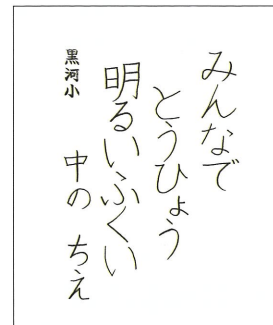 みんなで
とうひょう
明るいふくい
黒河小
中の ちえ